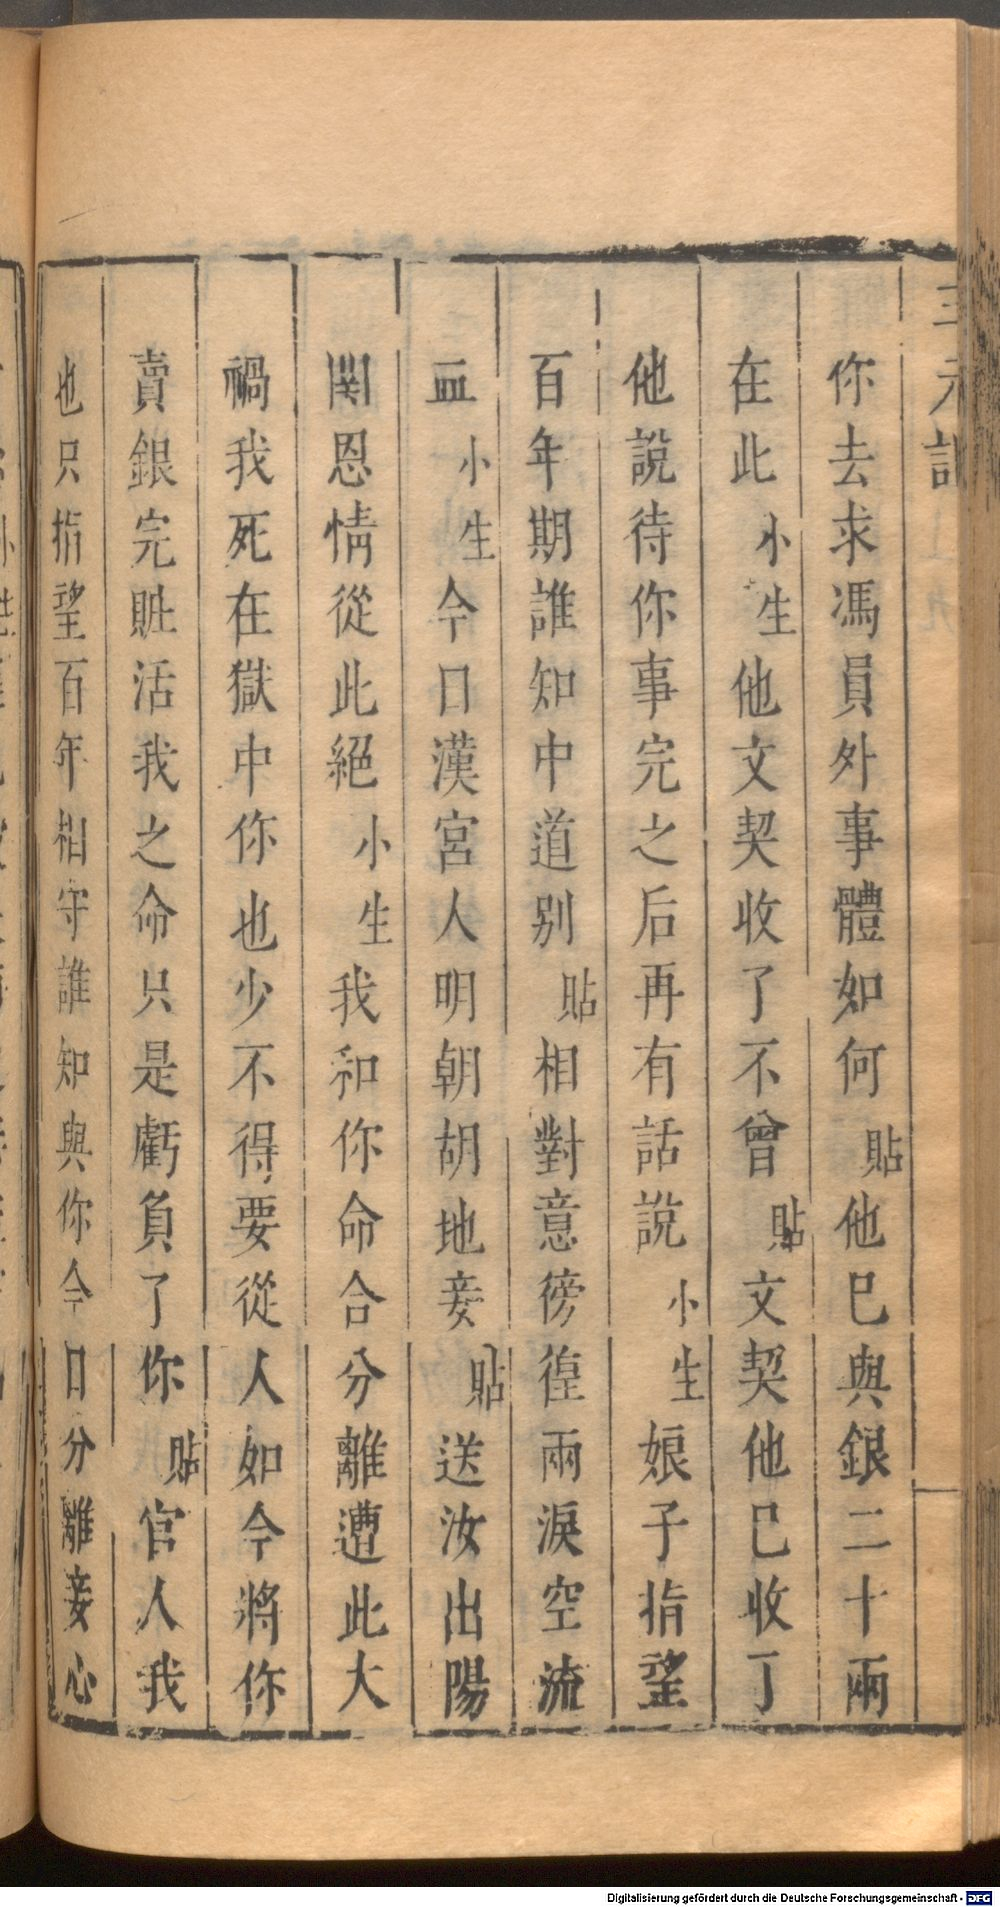 三元記
你去求馮員外事體如何貼他已與銀二十兩
在此小生他文契收了不曾貼文契他已收了
他說待你事完之后再有話說小生娘子指望
百年期誰知中道别貼相對意徬徨兩淚空流
血小生今日漢宮人明朝胡地妾貼送汝出陽
関恩情從此絕小生我和你命合分離遭此大
禍我死在獄中你也少不得要從人如今將你
賣銀完賍活我之命只是虧負了你貼官人我
也只指望百年相守誰知與你今日分離妾心
Digitalisierung gefördert durch die Deutsche Forschungsgemeinschaft - DFG